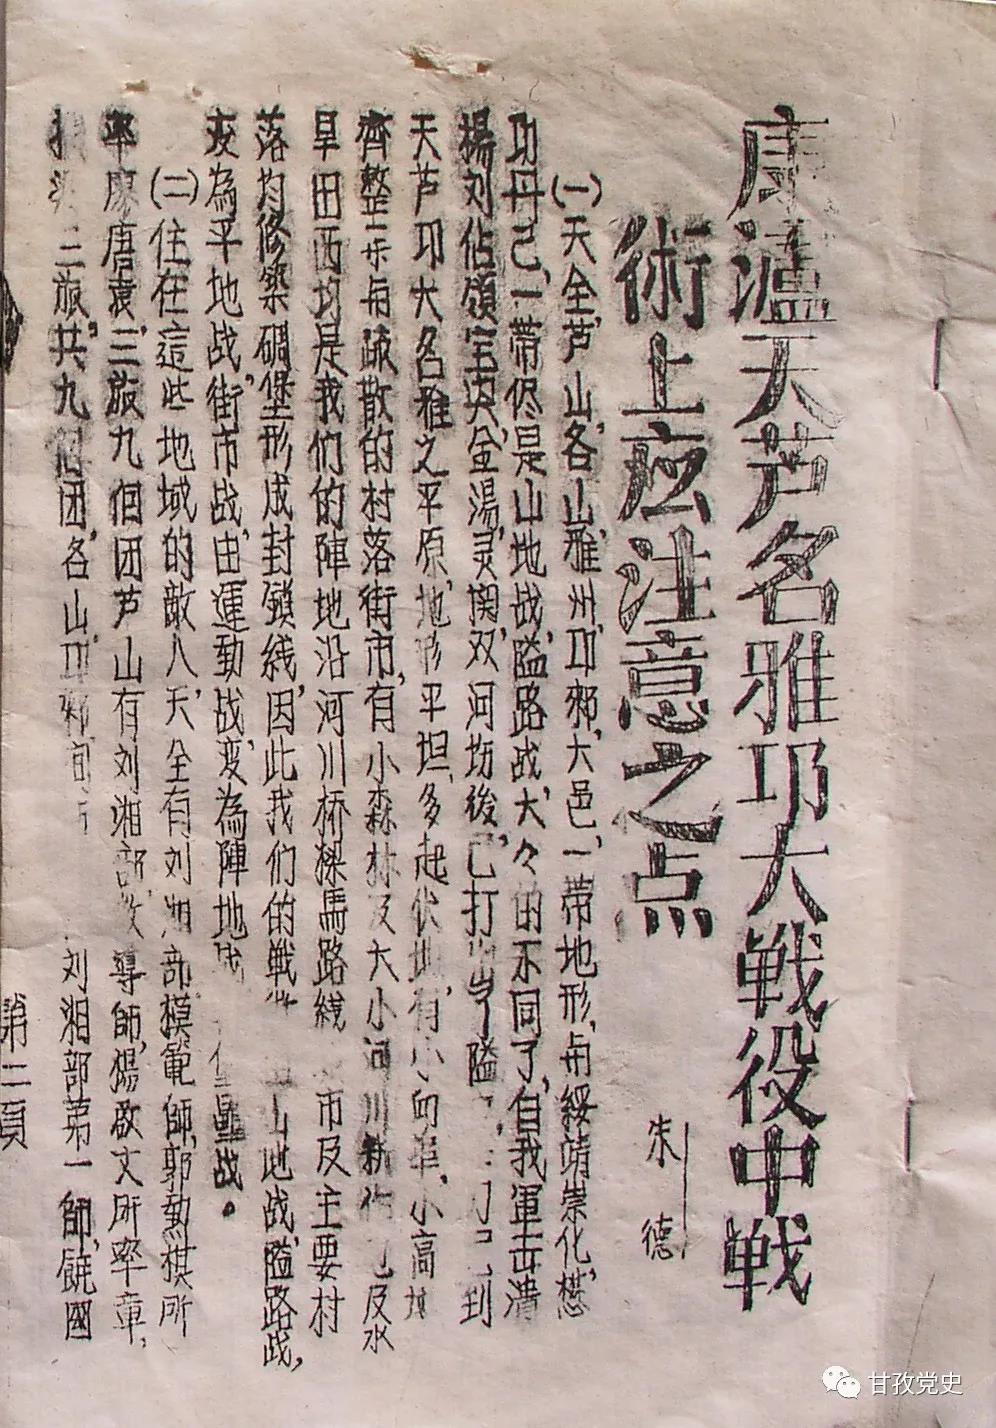 康瀘天芦名雅邛大戦役中戦
術上应注意之点
朱德
(一)天全,芦山,名山,雅州,邛郲,大邑,一帯地形,与綏靖崇化,懋
功丹巴,一帯侭是山地战,隘路战,大々的不同了,自我軍击潰
楊刘佔領宝兴,金湯,灵関,双河场後,已打出了隘 已到
天芦邛大名雅之平原,地形平坦,多起伏地,有小的 小高
齊整 与疎散的村落街市,有小森林及大小河川新 及水
旱田西均是我们的陣地沿河川桥樑馬路綫 市及主要村
落均修築碉堡形成封鎖綫,因此我们的戦 山地战,隘路战,
变為平地战,街市战,由運動战,变為陣地战 堡壘战。
(二)住在這些地域的敵人,天全有刘湘部模範師,郭勲祺所
率廖唐袁,三旅九個团芦山有刘湘部,教導師,楊啟文所率章,
三旅,共,九個团,名山,邛郲 刘湘部第一師,饒國
第二頁
甘孜党史